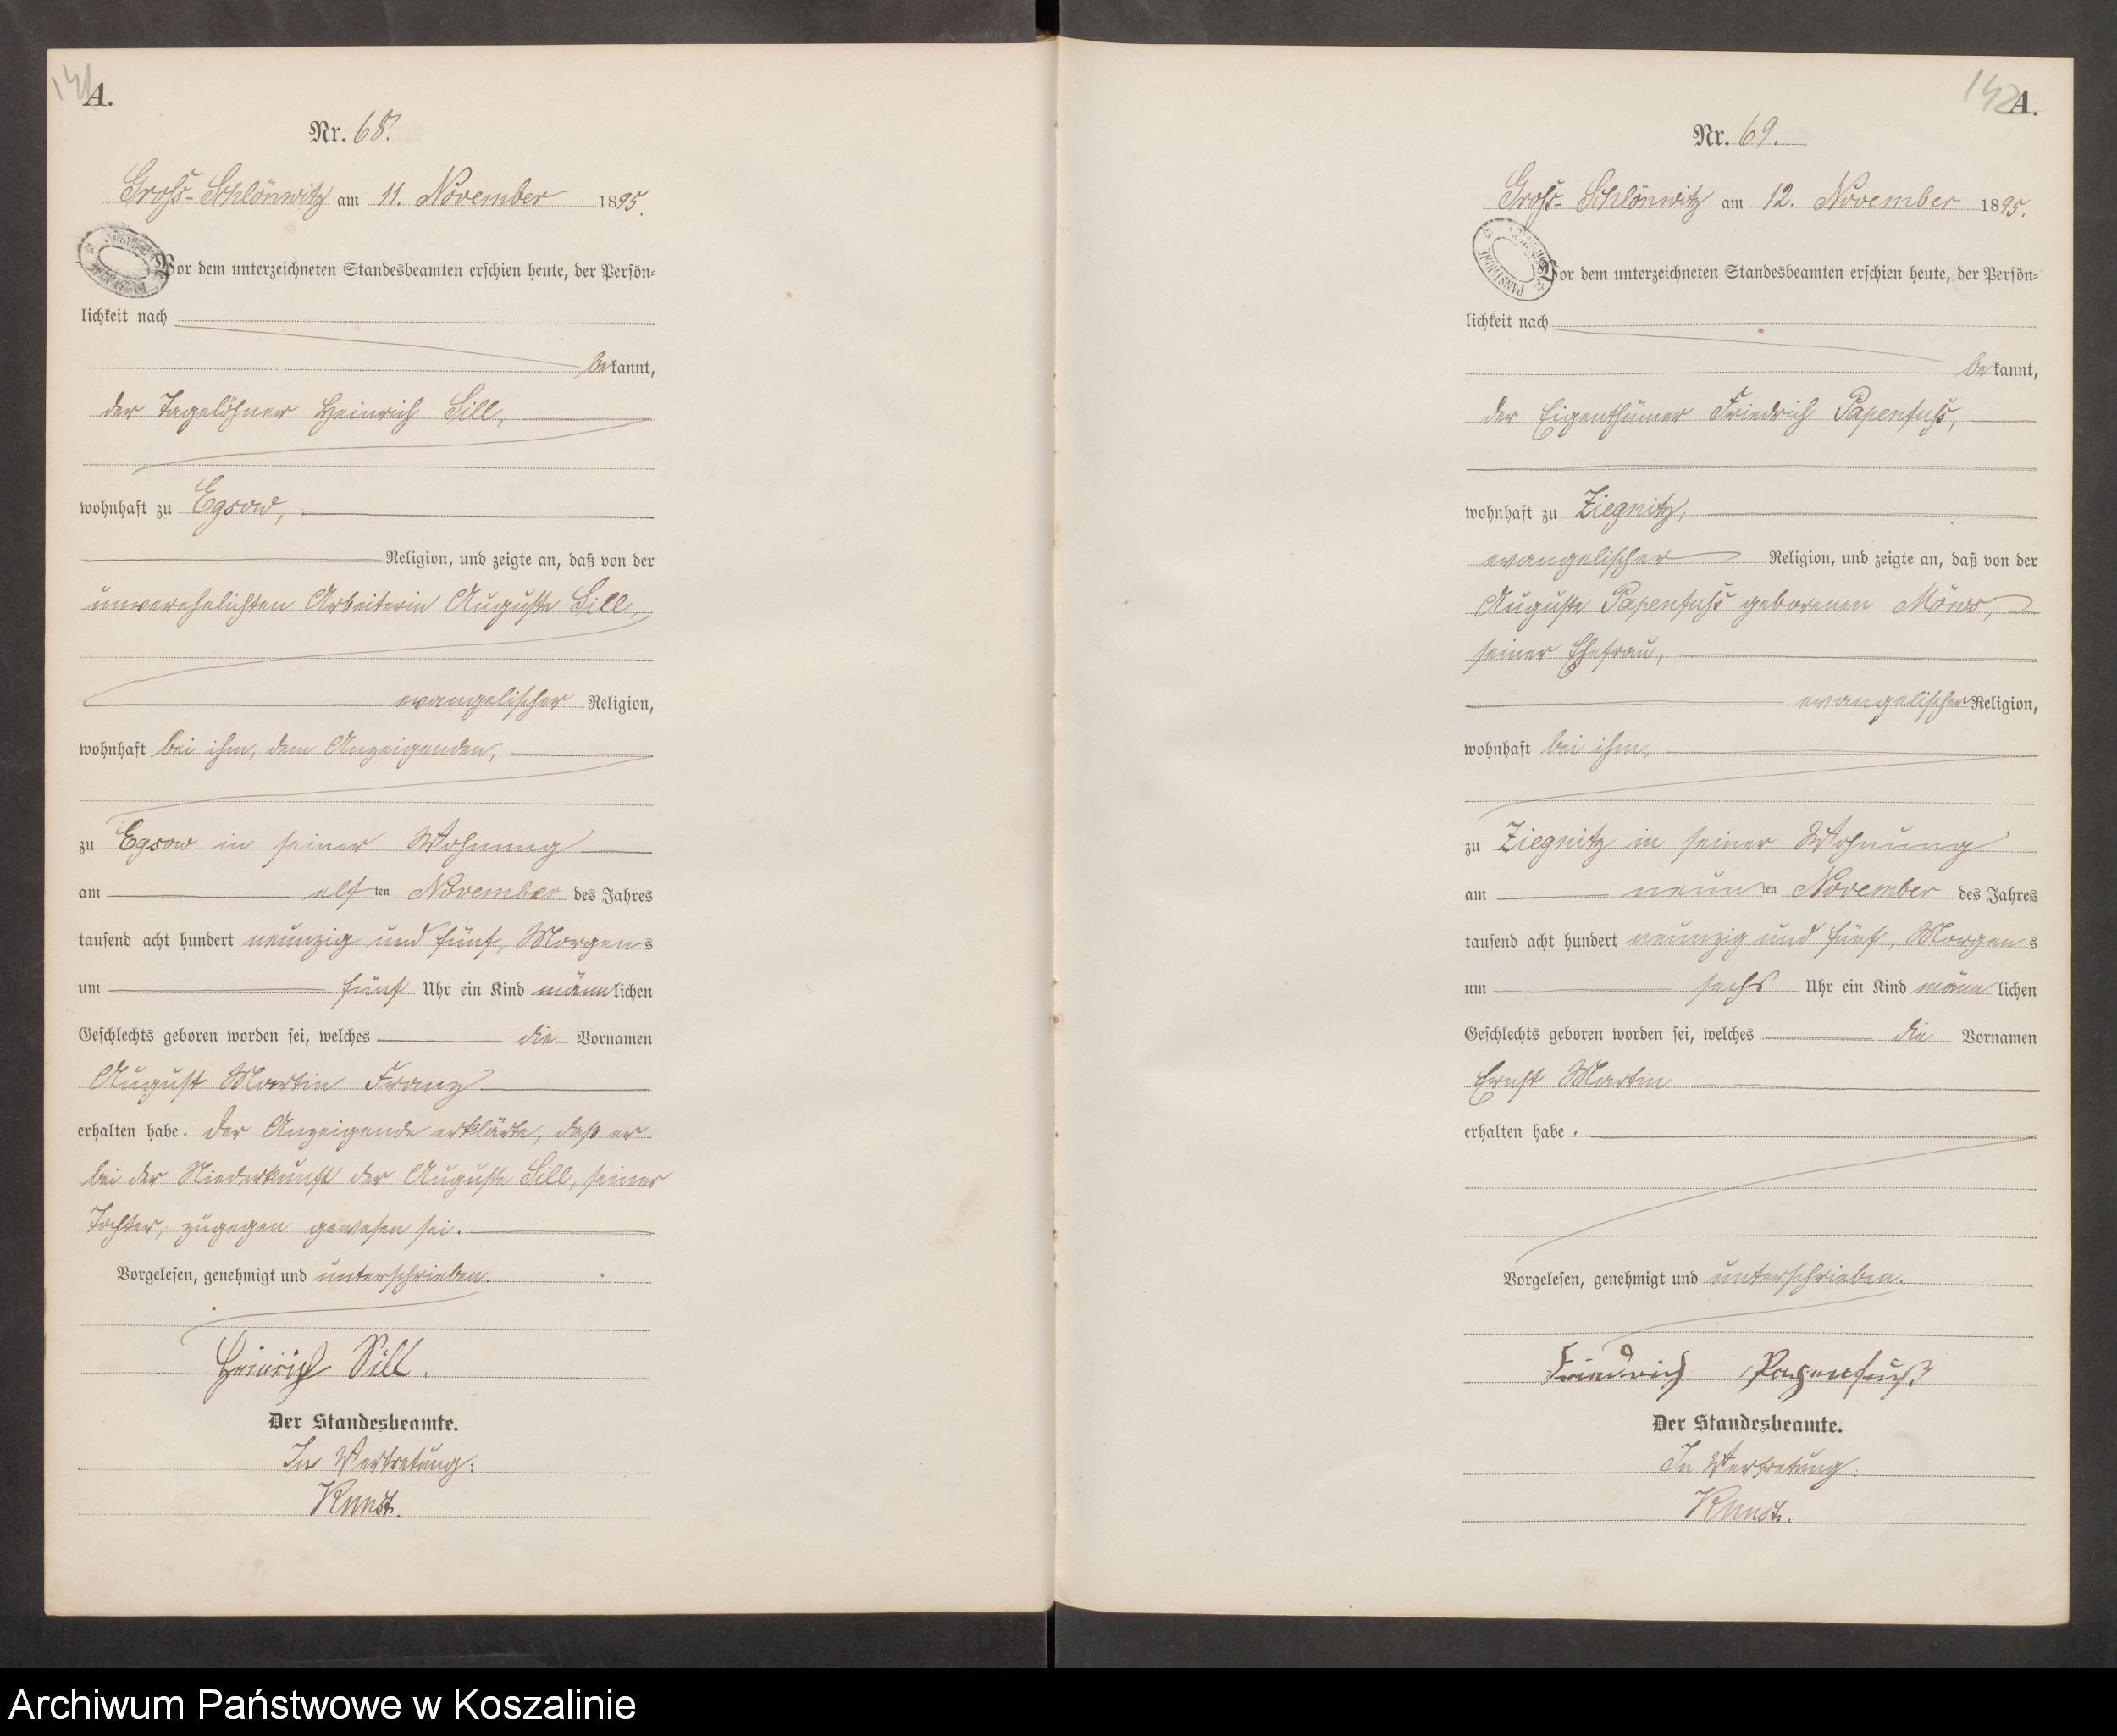 141
A.
Nr. 68.
Groß-Schlönwitz am 11. November 1895.
Vor dem unterzeichneten Standesbeamten erschien heute, der Persön=
lichkeit nach
bekannt,
der Tagelöhner Heinrich Sill,
wohnhaft zu Egsow,
Religion, und zeigte an, daß von der
unverehelichten Arbeiterin Auguste Sill,
evangelischer Religion,
wohnhaft bei ihm, dem Anzeigenden,
zu Egsow in seiner Wohnung
am elften November des Jahres
tausend acht hundert neunzig und fünf, Morgens
um fünf Uhr ein Kind männlichen
Geschlechts geboren worden sei, welches die Vornamen
August Martin Franz
erhalten habe. Der Anzeigende erklärte, daß er
bei der Niederkunft der Auguste Sill, seiner
Tochter, zugegen gewesen sei.
Vorgelesen, genehmigt und unterschrieben.
Heinrich Sill.
Der Standesbeamte.
In Vertretung:
Kunst.
142
A.
Nr. 69.
Groß-Schlönwitz am 12. November 1895.
Vor dem unterzeichneten Standesbeamten erschien heute, der Persön=
lichkeit nach
bekannt,
der Eigenthümer Friedrich Papenfuß,
wohnhaft zu Ziegnitz,
evangelischer Religion, und zeigte an, daß von der
Auguste Papenfuß geborenen Möws,
seiner Ehefrau,
evangelischer Religion,
wohnhaft bei ihm,
zu Ziegnitz in seiner Wohnung
am neunten November des Jahres
tausend acht hundert neunzig und fünf, Morgens
um sechs Uhr ein Kind männlichen
Geschlechts geboren worden sei, welches die Vornamen
Ernst Martin
erhalten habe.
Vorgelesen, genehmigt und unterschrieben.
Friedrich Papenfuß
Der Standesbeamte.
In Vertretung:
Kunst.
Archiwum Państwowe w Koszalinie